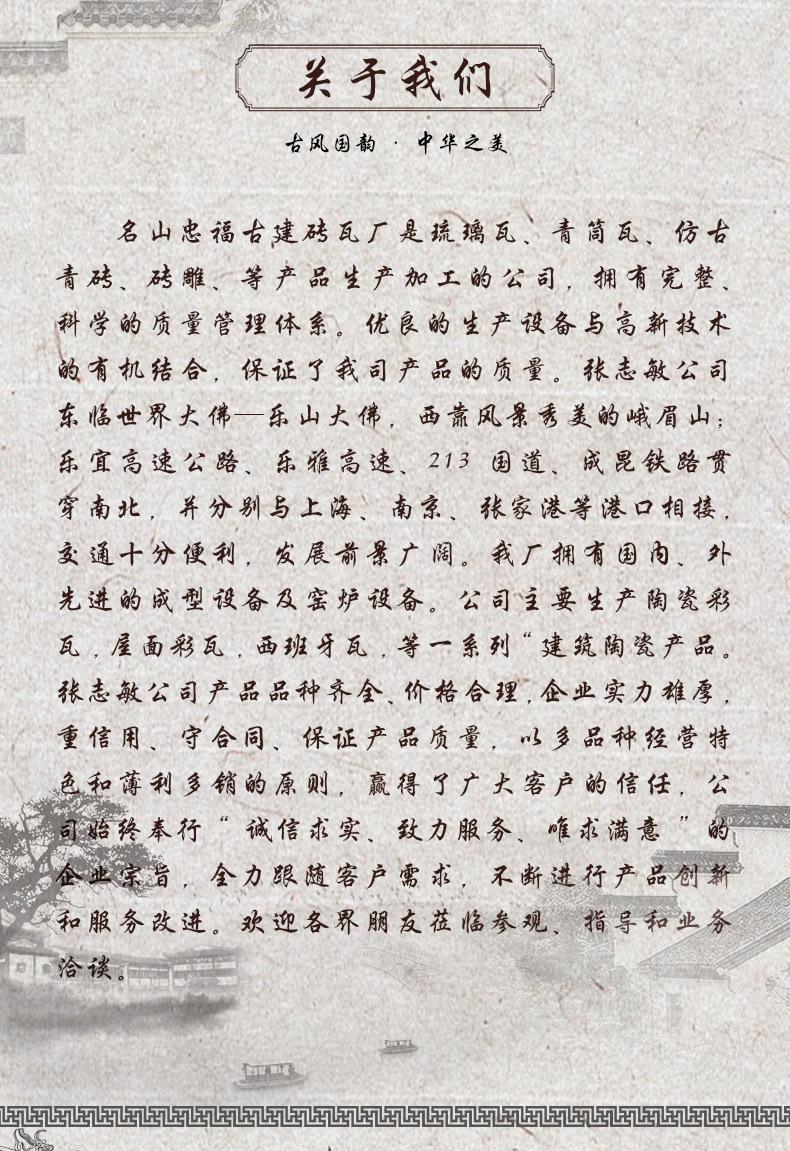 关于我们
古风国韵 · 中华之美
名山忠福古建砖瓦厂是琉璃瓦、青筒瓦、仿古
青砖、砖雕、等产品生产加工的公司，拥有完整、
科学的质量管理体系。优良的生产设备与高新技术
的有机结合，保证了我司产品的质量。张志敏公司
东临世界大佛—乐山大佛，西靠风景秀美的峨眉山；
乐宜高速公路、乐雅高速、213 国道、成昆铁路贯
穿南北，并分别与上海、南京、张家港等港口相接，
交通十分便利，发展前景广阔。我厂拥有国内、外
先进的成型设备及窑炉设备。公司主要生产陶瓷彩
瓦，屋面彩瓦，西班牙瓦，等一系列“建筑陶瓷产品。
张志敏公司产品品种齐全、价格合理，企业实力雄厚，
重信用、守合同、保证产品质量，以多品种经营特
色和薄利多销的原则，赢得了广大客户的信任，公
司始终奉行“ 诚信求实、致力服务、唯求满意 ”的
企业宗旨，全力跟随客户需求，不断进行产品创新
和服务改进。欢迎各界朋友莅临参观、指导和业务
洽谈。